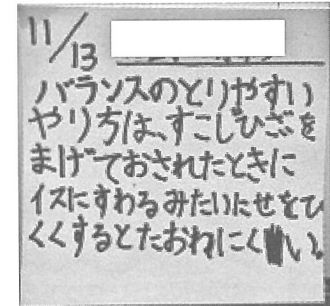 11/13
バランスのとりやすい
やりちは、すこしひざを
まげておされたときに
イスにすわるみたいにせをひ
くくするとたおれにくい。